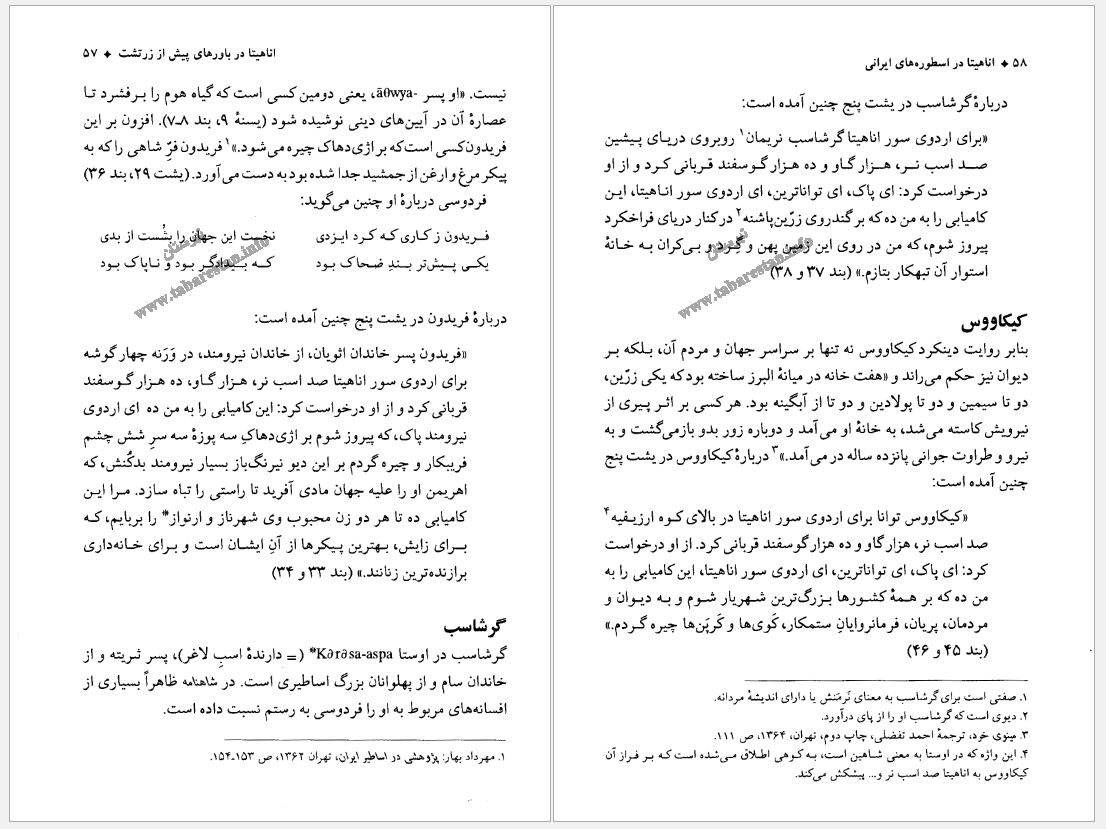 اناهیتا در باورهای پیش از زرتشت ◆ ۵۷
نیست. «او پسر āθwya-، یعنی دومین کسی است که گیاه هوم را برفشرد تا
عصارهٔ آن در آیین‌های دینی نوشیده شود (یسنهٔ ۹، بند ۸ـ۷). افزون بر این
فریدون کسی است که بر اژی‌دهاک چیره می‌شود.»۱ فریدون فرّ شاهی را که به
پیکر مرغ وارغن از جمشید جدا شده بود به دست می‌آورد. (یشت ۲۹، بند ۳۶)
فردوسی دربارهٔ او چنین می‌گوید:
فریدون ز کاری که کرد ایزدی نخست این جهان را بشُست از بدی
یکی پیش‌تر بندِ ضحاک بود که بیدادگر بود و ناپاک بود
تبرستان
www.tabarestan.info
دربارهٔ فریدون در یشت پنج چنین آمده است:
«فریدون پسر خاندان اثویان، از خاندان نیرومند، در وَرَنه چهارگوشه
برای اردوی سور اناهیتا صد اسب نر، هزار گاو، ده هزار گوسفند
قربانی کرد و از او درخواست کرد: این کامیابی را به من ده ای اردوی
نیرومند پاک، که پیروز شوم بر اژی‌دهاکِ سه پوزهٔ سه سرِ شش چشم
فریبکار و چیره گردم بر این دیو نیرنگ‌باز بسیار نیرومند بدکُنش، که
اهریمن او را علیه جهان مادی آفرید تا راستی را تباه سازد. مرا این
کامیابی ده تا هر دو زن محبوب وی شهرناز و ارنواز* را بربایم، که
برای زایش، بهترین پیکرها از آنِ ایشان است و برای خانه‌داری
برازنده‌ترین زنانند.» (بند ۳۳ و ۳۴)
گرشاسب
گرشاسب در اوستا Kərəsa-aspa* (= دارندهٔ اسبِ لاغر)، پسر ثریته و از
خاندان سام و از پهلوانان بزرگ اساطیری است. در شاهنامه ظاهراً بسیاری از
افسانه‌های مربوط به او را فردوسی به رستم نسبت داده است.
۱. مهرداد بهار: پژوهشی در اساطیر ایران، تهران ۱۳۶۲، ص ۱۵۳ـ۱۵۴.
۵۸ ◆ اناهیتا در اسطوره‌های ایرانی
دربارهٔ گرشاسب در یشت پنج چنین آمده است:
«برای اردوی سور اناهیتا گرشاسب نریمان۱ روبروی دریای پیشین
صد اسب نر، هزار گاو و ده هزار گوسفند قربانی کرد و از او
درخواست کرد: ای پاک، ای تواناترین، ای اردوی سور اناهیتا، این
کامیابی را به من ده که بر گندروی زرّین‌پاشنه۲ در کنار دریای فراخکرد
پیروز شوم، که من در روی این زمین پهن و گِرد و بی‌کران به خانهٔ
استوار آن تبهکار بتازم.» (بند ۳۷ و ۳۸)
تبرستان
www.tabarestan.info
کیکاووس
بنابر روایت دینکرد کیکاووس نه تنها بر سراسر جهان و مردم آن، بلکه بر
دیوان نیز حکم می‌راند و «هفت خانه در میانهٔ البرز ساخته بود که یکی زرّین،
دو تا سیمین و دو تا پولادین و دو تا از آبگینه بود. هر کسی بر اثر پیری از
نیرویش کاسته می‌شد، به خانهٔ او می‌آمد و دوباره زور بدو بازمی‌گشت و به
نیرو و طراوت جوانی پانزده ساله در می‌آمد.»۳ دربارهٔ کیکاووس در یشت پنج
چنین آمده است:
«کیکاووس توانا برای اردوی سور اناهیتا در بالای کوه ارزیفیه۴
صد اسب نر، هزار گاو و ده هزار گوسفند قربانی کرد. از او درخواست
کرد: ای پاک، ای تواناترین، ای اردوی سور اناهیتا، این کامیابی را به
من ده که بر همهٔ کشورها بزرگ‌ترین شهریار شوم و به دیوان و
مردمان، پریان، فرمانروایانِ ستمکار، کَوی‌ها و کَرپَن‌ها چیره گردم.»
(بند ۴۵ و ۴۶)
۱. صفتی است برای گرشاسب به معنای نَرمَنش یا دارای اندیشهٔ مردانه.
۲. دیوی است که گرشاسب او را از پای درآورد.
۳. مینوی خرد، ترجمهٔ احمد تفضلی، چاپ دوم، تهران، ۱۳۶۴، ص ۱۱۱.
۴. این واژه که در اوستا به معنی شاهین است، به کوهی اطلاق می‌شده است که بر فراز آن
کیکاووس به اناهیتا صد اسب نر و... پیشکش می‌کند.